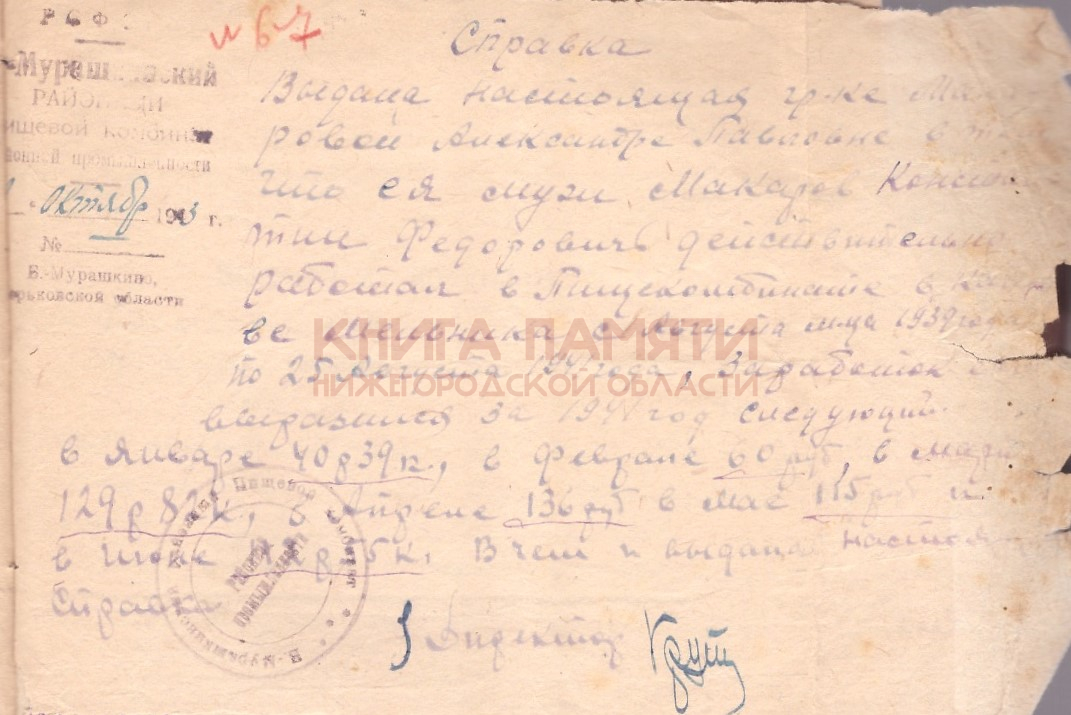 РСФ
№ 67
Мураш..вский
РАЙОННЫЙ
ищевой комбинат
йонной промышленности
" октябр 1943 г.
№
Б.-Мурашкино,
орьковской области
Справка
Выдана настоящая гр-ке Мака
ровой Александре Павловне в том
что ея муж Макаров Конста
тин Федорович действительно
работал в Пищекомбинате в каче
ве Мельника с Августа м-ца 1939 года
по 25 Августа 1941 года, Заработок
выразился за 1941 год следующий
в Январе 40р39к, в Феврале 60 руб, в Марте
129р 82к, в Апреле 136 руб в мае 115 руб и
в Июне р 75к. В чем и выдана настоя
Справка
Директор
КНИГА ПАМЯТИ
НИЖЕГОРОДСКОЙ ОБЛАСТИ